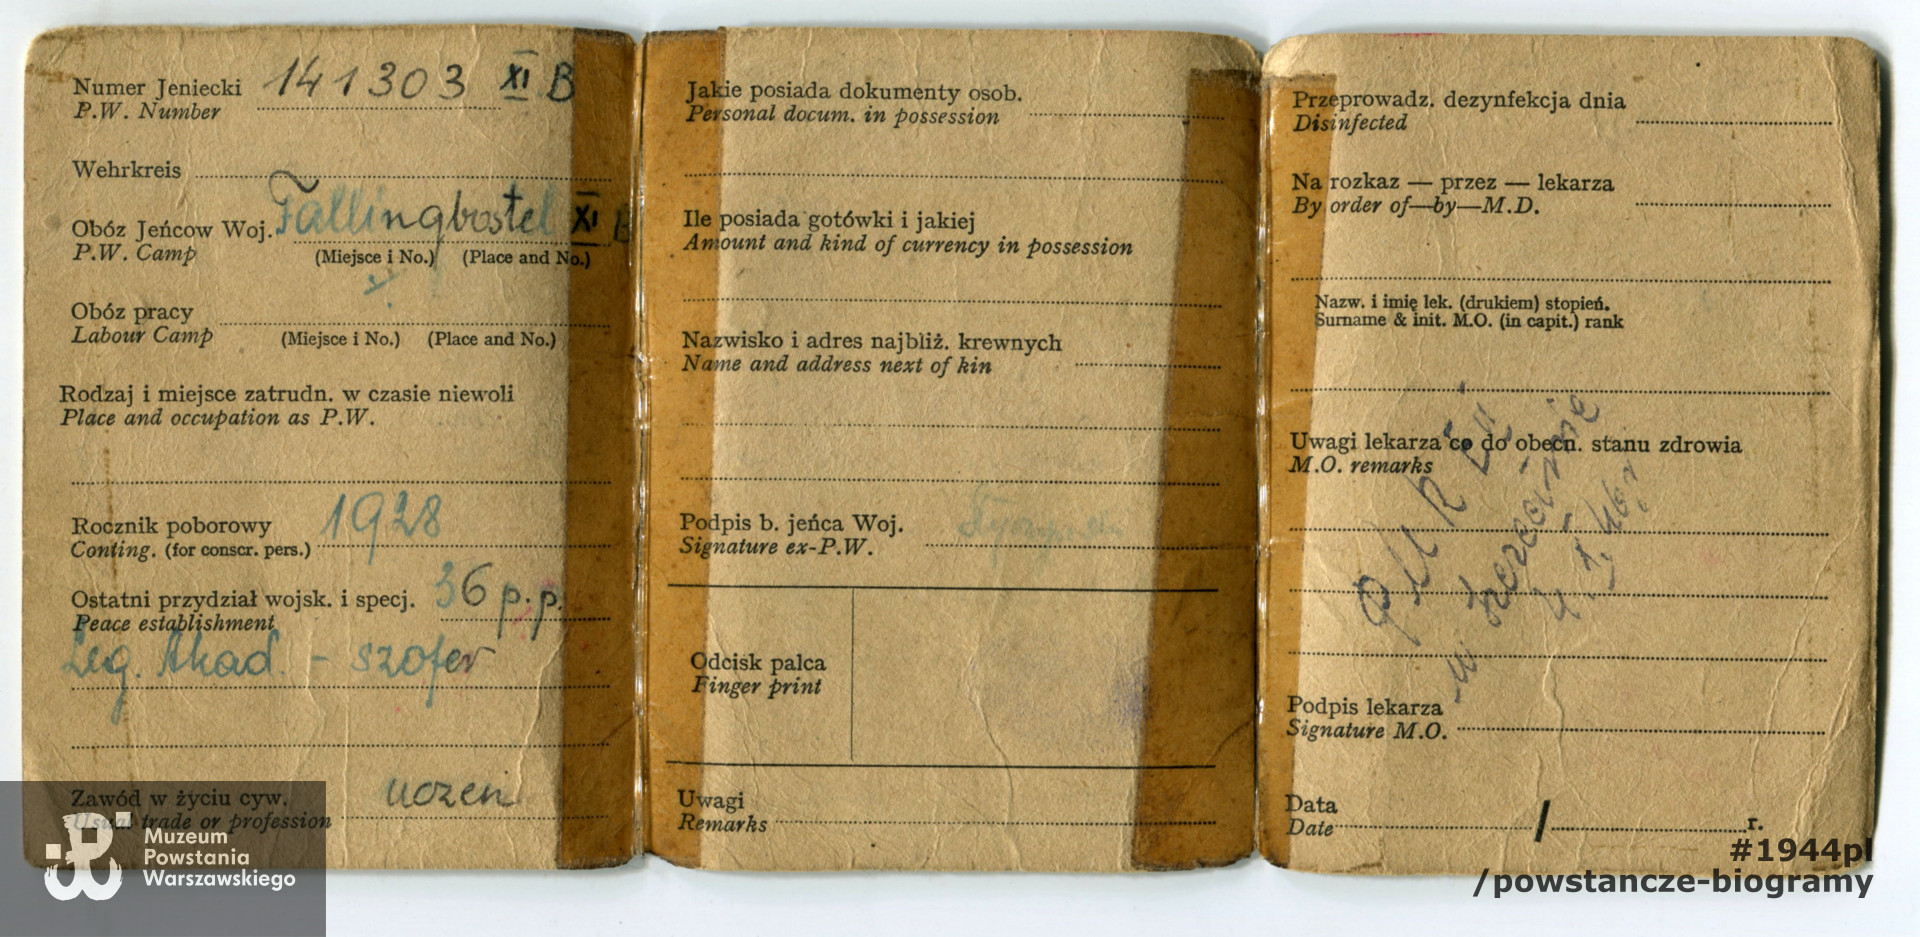 Numer Jeniecki 141303 XI B
P.W. Number
Wehrkreis
Obóz Jeńcow Woj. Fallingbostel XI B
P.W. Camp (Miejsce i No.) (Place and No.)
Obóz pracy
Labour Camp (Miejsce i No.) (Place and No.)
Rodzaj i miejsce zatrudn. w czasie niewoli
Place and occupation as P.W.
Rocznik poborowy 1928
Conting. (for conscr. pers.)
Ostatni przydział wojsk. i specj. 36 p.p.
Peace establishment
Leg. Akad. - szofer
Zawód w życiu cyw. uczeń
Usual trade or profession
Jakie posiada dokumenty osob.
Personal docum. in possession
Ile posiada gotówki i jakiej
Amount and kind of currency in possession
Nazwisko i adres najbliż. krewnych
Name and address next of kin
Podpis b. jeńca Woj.
Signature ex-P.W.
Odcisk palca
Finger print
Uwagi
Remarks
Przeprowadz. dezynfekcja dnia
Disinfected
Na rozkaz — przez — lekarza
By order of—by—M.D.
Nazw. i imię lek. (drukiem) stopień.
Surname & init. M.O. (in capit.) rank
Uwagi lekarza co do obecn. stanu zdrowia
M.O. remarks
Podpis lekarza
Signature M.O.
Data
Date / r.
Muzeum
Powstania
Warszawskiego
#1944pl
/powstancze-biogramy